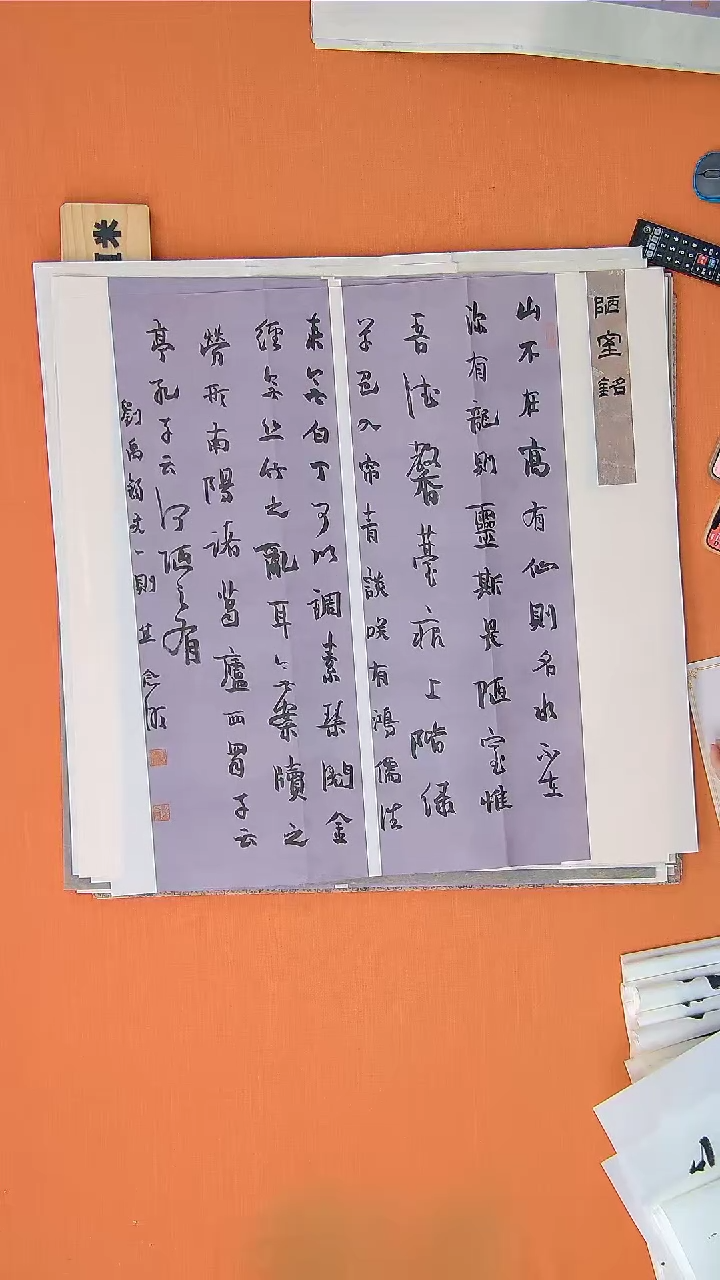 陋室銘
山不在高有仙則名水不在
深有龍則靈斯是陋室惟
吾德馨薹痕上階綠
草色入帘青談咲有鴻儒往
來無白丁可以調素琴閱金
經無丝竹之亂耳無案牘之
勞形南陽諸葛廬西蜀子云
亭孔子云何陋之有
劉禹錫文一則
米